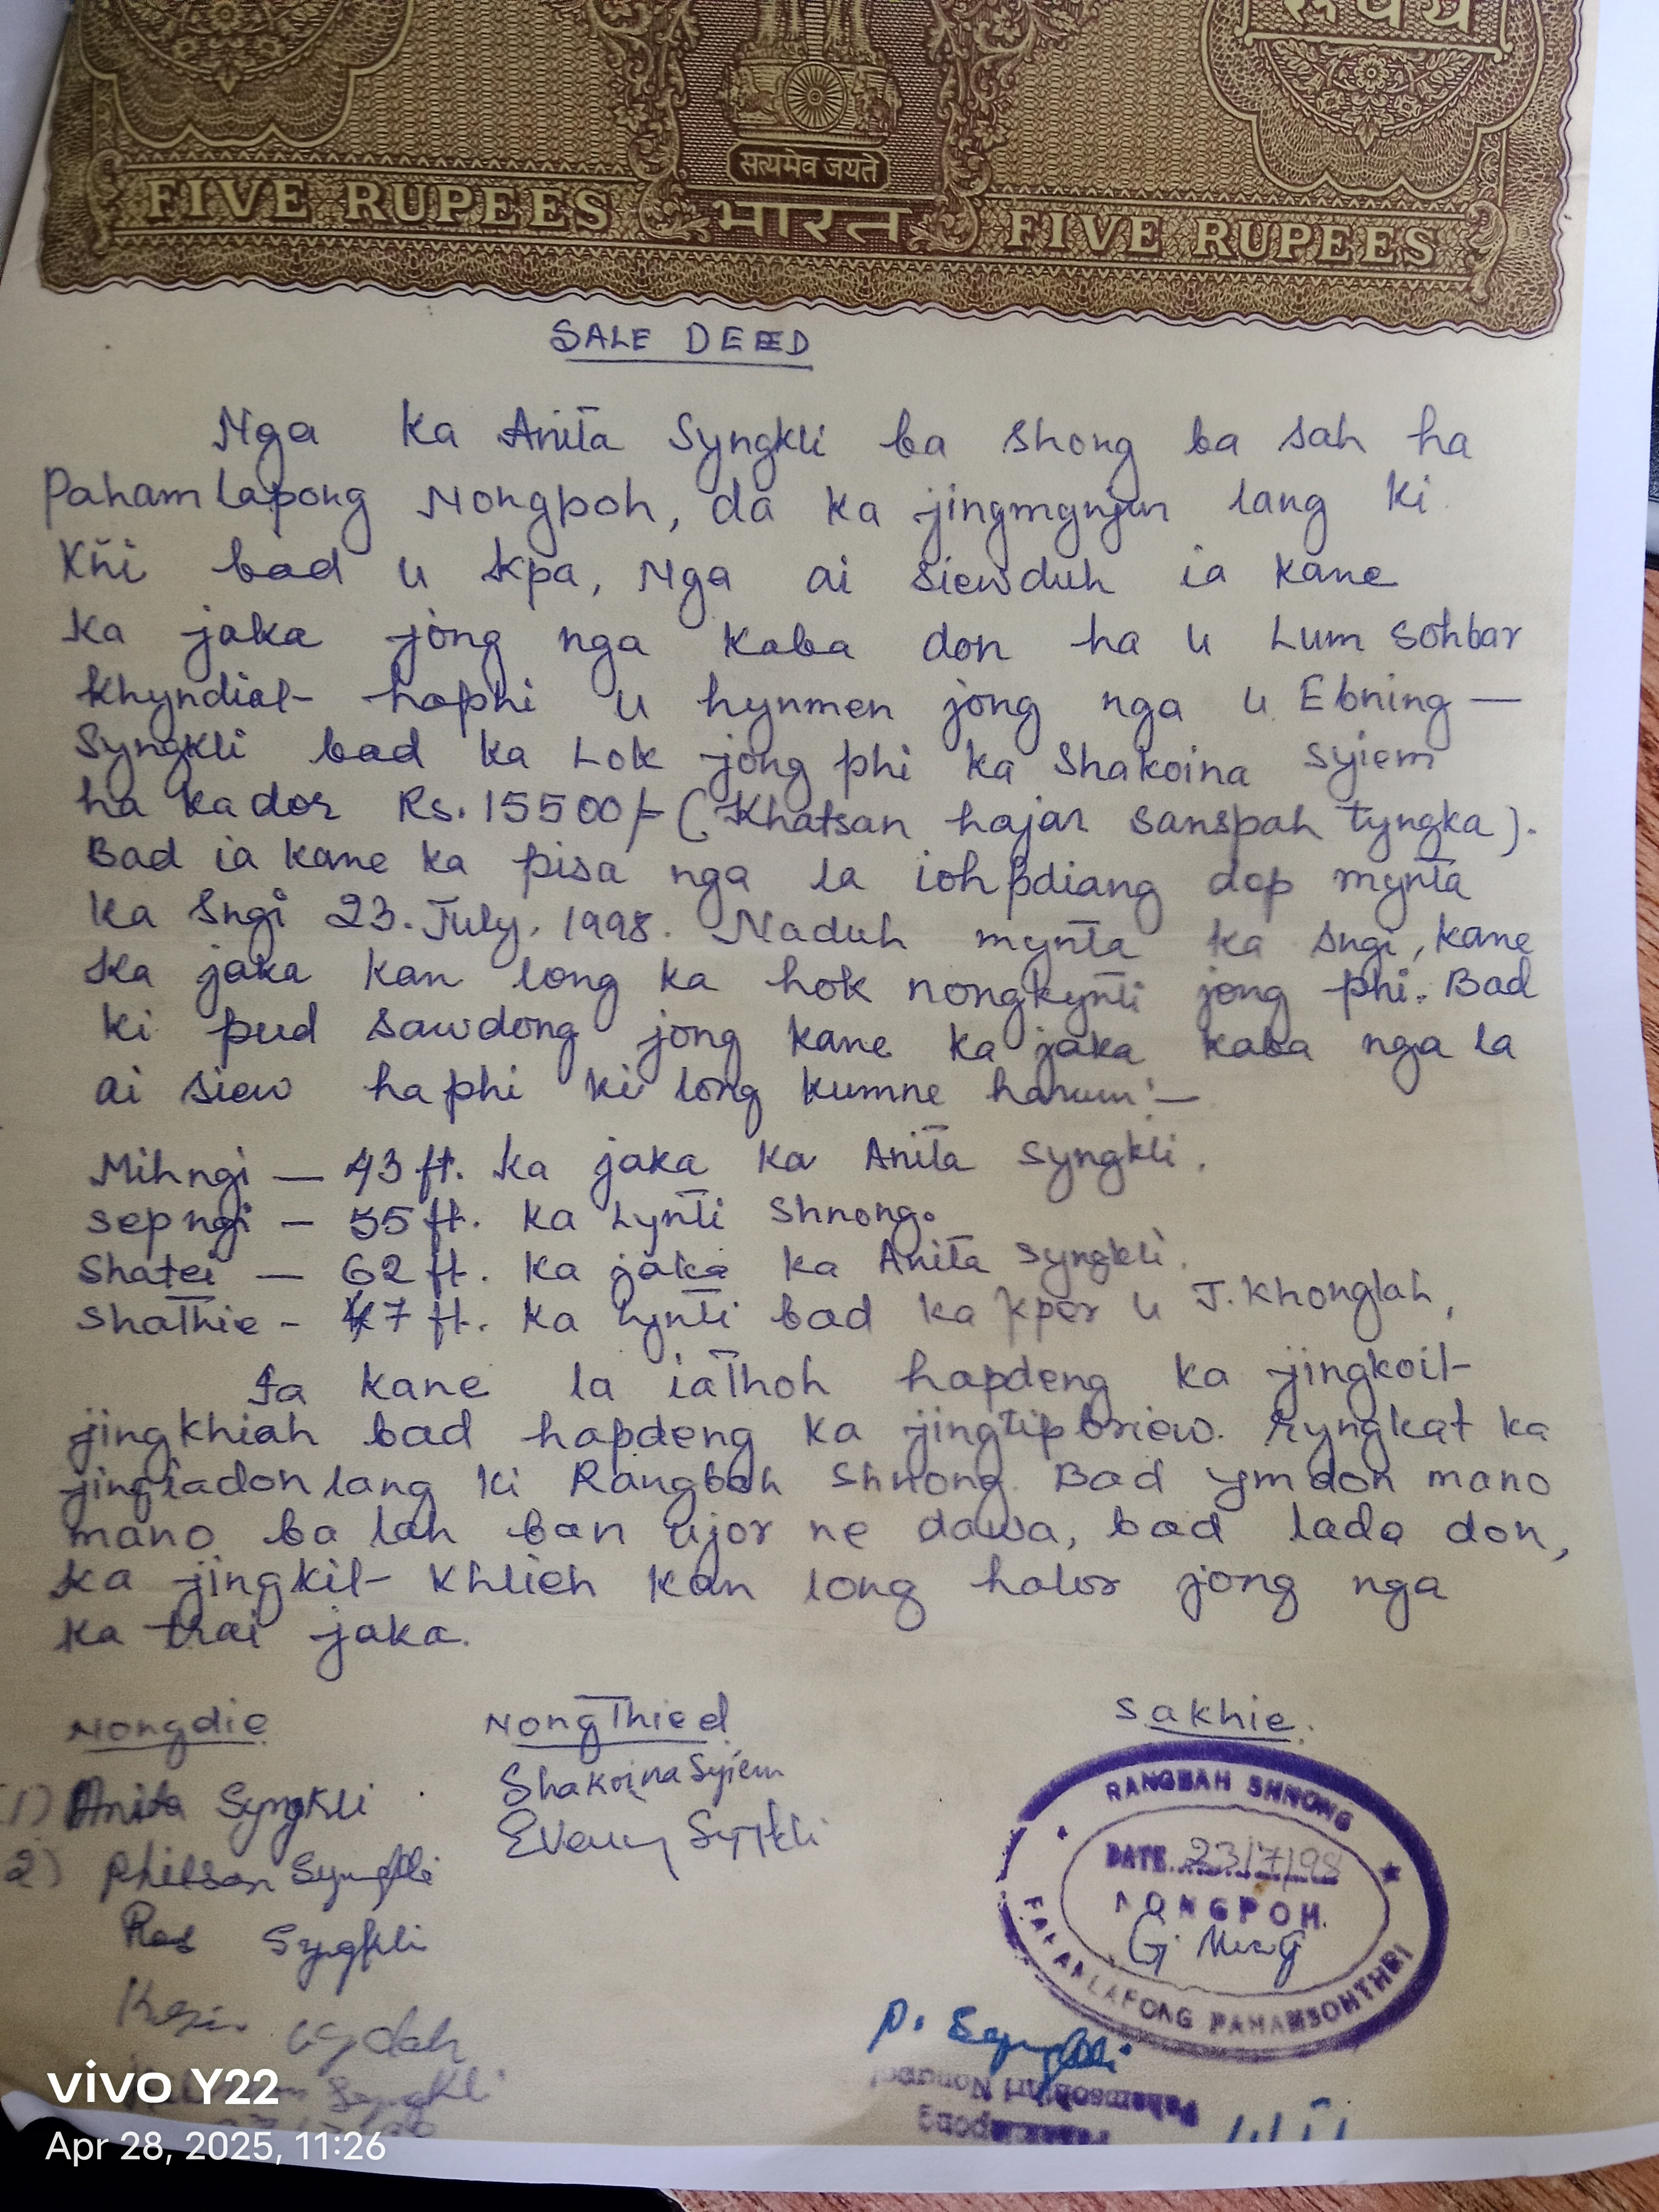 रुपये
सत्यमेव जयते
FIVE RUPEES भारत FIVE RUPEES
SALE DEED
Nga Ka Anita Syngkli ba shong ba sah ha
Pahamlapong Nongpoh, da ka jingmynjur lang ki
Kñi bad u kpa, Nga ai siewduh ia kane
ka jaka jong nga kaba don ha u Lum Sohbar
Khyndiat haphi u hynmen jong nga u Ebning —
Syngkli bad ka Lok jong phi ka Shakoina Syiem
ha kador Rs. 15500/- (Khatsan hajar sanspah tyngka).
Bad ia kane ka pisa nga la ioh pdiang dep mynta
ka Sngi 23. July. 1998. Naduh mynta ka sngi, kane
ka jaka kan long ka hok nongkynti jong phi. Bad
ki pud sawdong jong kane ka jaka kaba nga la
ai siew ha phi ki long kumne harum:—
Mihngi — 43 ft. ka jaka ka Anita Syngkli.
Sepngi — 55 ft. ka Lynti Shnong.
Shatei — 62 ft. ka jaka ka Anita Syngkli.
Shathie - 47 ft. ka lynti bad ka kper u J. Khonglah,
Ia kane la iathoh hapdeng ka jingkoit-
jingkhiah bad hapdeng ka jingtipbriew. ryngkat ka
jingiadon lang ki Rangbah Shnong. Bad ymdon mano
mano ba lah ban ujor ne dawa, bad lada don,
ka jingkit- khlieh kan long halor jong nga
ka trai jaka.
Nongdie NongThied Sakhie.
(1) Anita Syngkli Shakoina Syiem
2) Philson Syngkli
Syngkli
RANGBAH SHNONG
DATE 23/7/98
NONGPOH
PAHAMLAPONG PAHAMSOHTHRI
P. Syngkli
Syngkli
vivo Y22
Apr 28, 2025, 11:26